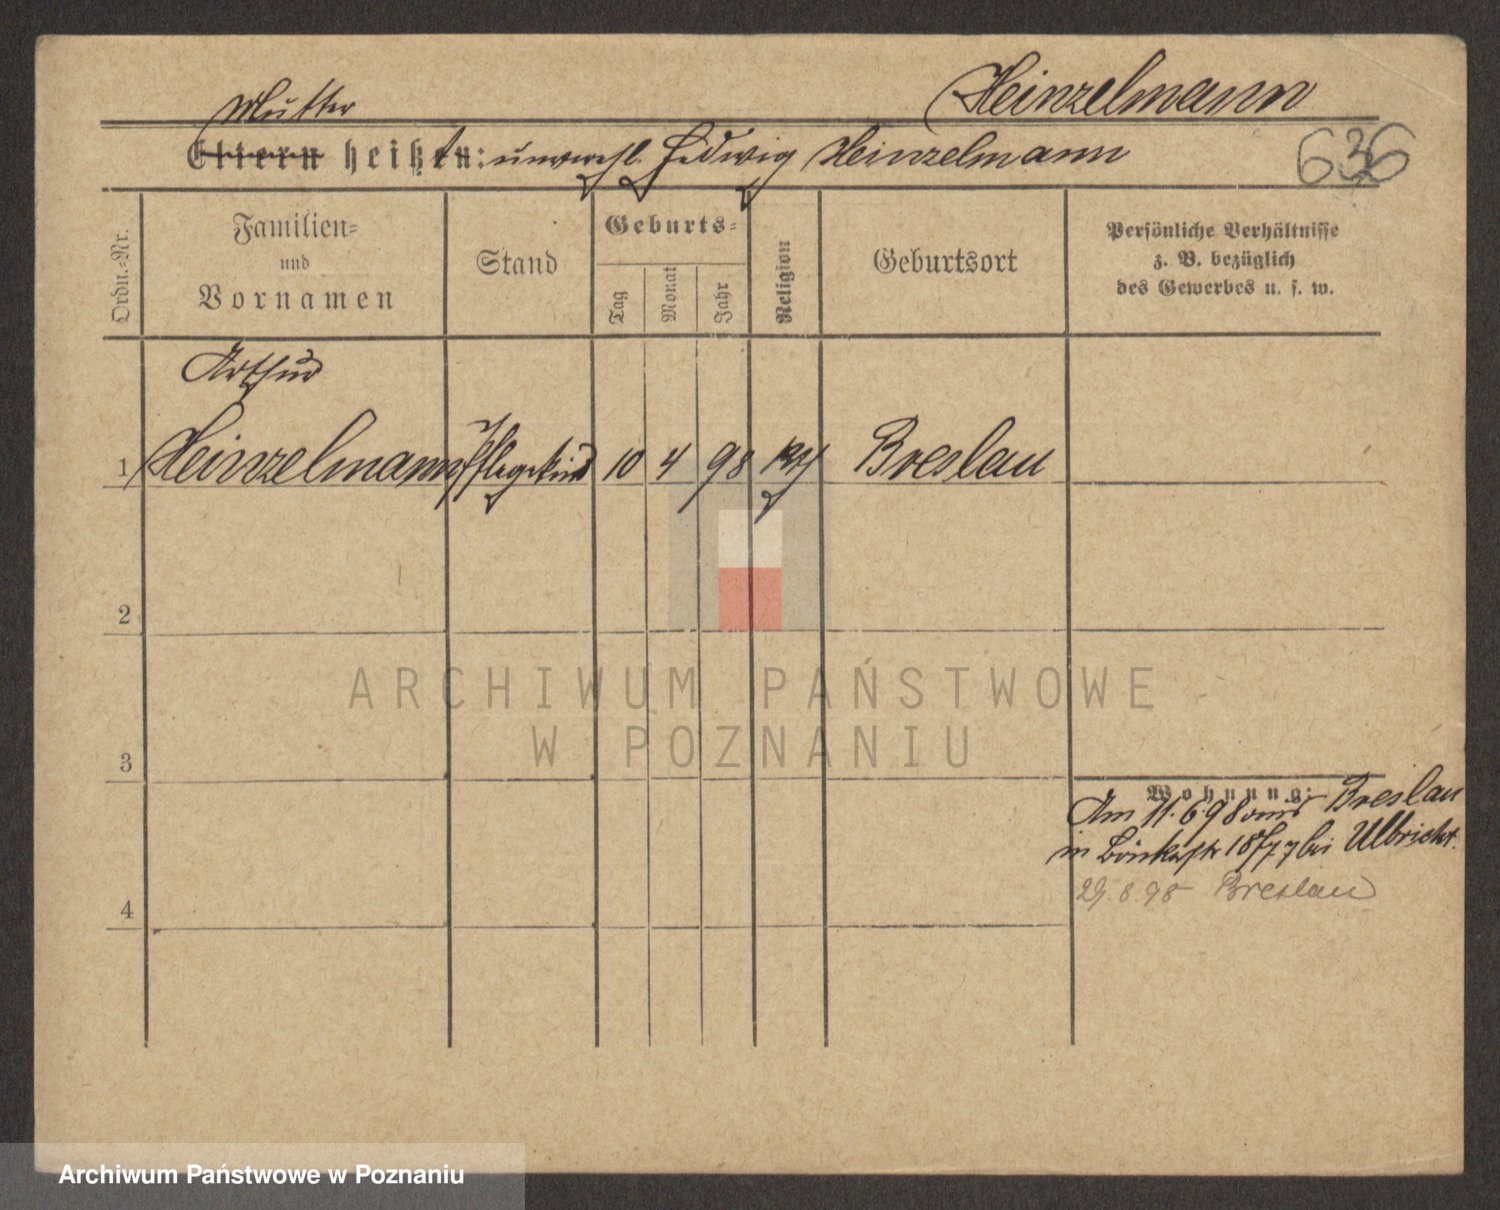 Heinzelmann
Mutter
Eltern heißt: unverehl. Hedwig Heinzelmann
636
Ordn.-Nr.
Familien-
und
Vornamen
Stand
Geburts-
Tag
Monat
Jahr
Religion
Geburtsort
Persönliche Verhältnisse
z. B. bezüglich
des Gewerbes u. s. w.
Arthur
1 Heinzelmann Pflegekind 10 4 98 Breslau
2
ARCHIWUM PAŃSTWOWE
W POZNANIU
3
Wohnung:
Am 11.6.98 Breslau
in 18/77 bei Ulbricht.
29.8.98 Breslau
4
Archiwum Państwowe w Poznaniu